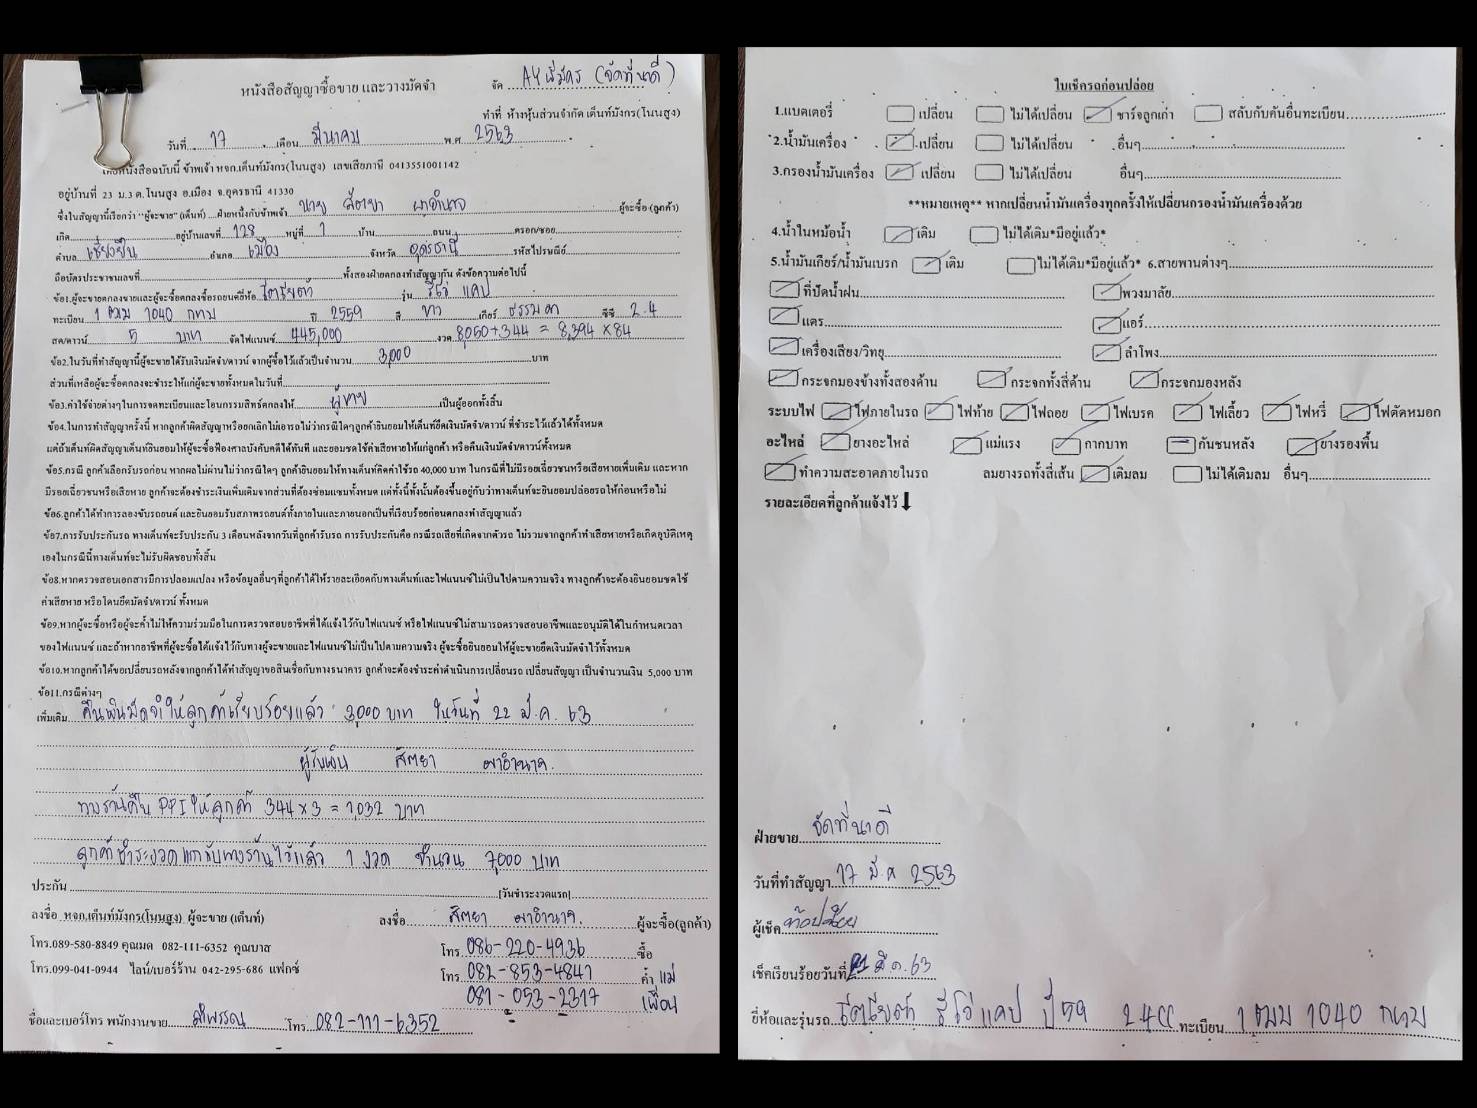 หนังสือสัญญาซื้อขาย และวางมัดจำ
จัด AY (จัดที่นาดี)
ทำที่ ห้างหุ้นส่วนจำกัด เต็นท์มังกร(โนนสูง)
วันที่ 17 เดือน มีนาคม พ.ศ 2563
หนังสือฉบับนี้ ข้าพเจ้า หจก.เต็นท์มังกร(โนนสูง) เลขเสียภาษี 0413551001142
อยู่บ้านที่ 23 ม.3 ต.โนนสูง อ.เมือง จ.อุดรธานี 41330
ซึ่งในสัญญานี้เรียกว่า "ผู้จะขาย" (เต็นท์) ฝ่ายหนึ่งกับข้าพเจ้า นาย สัตยา ผู้จะซื้อ (ลูกค้า)
เกิด อยู่บ้านเลขที่ 128 หมู่ที่ 1 บ้าน ถนน ตรอก/ซอย
ตำบล เชียงยืน อำเภอ เมือง จังหวัด อุดรธานี รหัสไปรษณีย์
ถือบัตรประชาชนเลขที่ ทั้งสองฝ่ายตกลงทำสัญญากัน ดังข้อความต่อไปนี้
ข้อ1.ผู้จะขายตกลงขายและผู้จะซื้อตกลงซื้อรถยนต์ยี่ห้อ โตโยต้า รุ่น รีโว่ แคป
ทะเบียน 1 ฒม 1040 กทม ปี 2559 สี ขาว เกียร์ ธรรมดา ซีซี 2.4
สด/ดาวน์ 5 บาท จัดไฟแนนซ์ 445,000 งวด 8,050+344 = 8,394 x 84
ข้อ2.ในวันที่ทำสัญญานี้ผู้จะขายได้รับเงินมัดจำ/ดาวน์ จากผู้ซื้อไว้แล้วเป็นจำนวน 3,000 บาท
ส่วนที่เหลือผู้จะซื้อตกลงจะชำระให้แก่ผู้จะขายทั้งหมดในวันที่
ข้อ3.ค่าใช้จ่ายต่างๆในการจดทะเบียนและโอนกรรมสิทธ์ตกลงให้ ผู้ขาย เป็นผู้ออกทั้งสิ้น
ข้อ4.ในการทำสัญญาครั้งนี้ หากลูกค้าผิดสัญญาหรือยกเลิกไม่เอารถไม่ว่ากรณีใดๆลูกค้ายินยอมให้เต็นท์ยึดเงินมัดจำ/ดาวน์ ที่ชำระไว้แล้วได้ทั้งหมด
แต่ถ้าเต็นท์ผิดสัญญาเต็นท์ยินยอมให้ผู้จะซื้อฟ้องศาลบังคับคดีได้ทันที และยอมชดใช้ค่าเสียหายให้แก่ลูกค้า หรือคืนเงินมัดจำ/ดาวน์ทั้งหมด
ข้อ5.กรณี ลูกค้าเลือกรับรถก่อน หากผลไม่ผ่านไม่ว่ากรณีใดๆ ลูกค้ายินยอมให้ทางเต็นท์คิดค่าใช้รถ 40,000 บาท ในกรณีที่ไม่มีรอยเฉี่ยวชนหรือเสียหายเพิ่มเติม และหาก
มีรอยเฉี่ยวชนหรือเสียหาย ลูกค้าจะต้องชำระเงินเพิ่มเติมจากส่วนที่ต้องซ่อมแซมทั้งหมด แต่ทั้งนี้ทั้งนั้นต้องขึ้นอยู่กับว่าทางเต็นท์จะยินยอมปล่อยรถให้ก่อนหรือไม่
ข้อ6.ลูกค้าได้ทำการลองขับรถยนต์ และยินยอมรับสภาพรถยนต์ทั้งภายในและภายนอกเป็นที่เรียบร้อยก่อนตกลงทำสัญญาแล้ว
ข้อ7.การรับประกันรถ ทางเต็นท์จะรับประกัน 3 เดือนหลังจากวันที่ลูกค้ารับรถ การรับประกันคือ กรณีรถเสียที่เกิดจากตัวรถ ไม่รวมจากลูกค้าทำเสียหายหรือเกิดอุบัติเหตุ
เองในกรณีนี้ทางเต็นท์จะไม่รับผิดชอบทั้งสิ้น
ข้อ8.หากตรวจสอบเอกสารมีการปลอมแปลง หรือข้อมูลอื่นๆที่ลูกค้าได้ให้รายละเอียดกับทางเต็นท์และไฟแนนซ์ไม่เป็นไปตามความจริง ทางลูกค้าจะต้องยินยอมชดใช้
ค่าเสียหาย หรือโดนยึดมัดจำ/ดาวน์ ทั้งหมด
ข้อ9.หากผู้จะซื้อหรือผู้จะค้ำไม่ให้ความร่วมมือในการตรวจสอบอาชีพที่ได้แจ้งไว้กับไฟแนนซ์ หรือไฟแนนซ์ไม่สามารถตรวจสอบอาชีพและอนุมัติได้ในกำหนดเวลา
ของไฟแนนซ์ และถ้าหากอาชีพที่ผู้จะซื้อได้แจ้งไว้กับทางผู้จะขายและไฟแนนซ์ไม่เป็นไปตามความจริง ผู้จะซื้อยินยอมให้ผู้จะขายยึดเงินมัดจำไว้ทั้งหมด
ข้อ10.หากลูกค้าได้ขอเปลี่ยนรถหลังจากลูกค้าได้ทำสัญญาขอสินเชื่อกับทางธนาคาร ลูกค้าจะต้องชำระค่าดำเนินการเปลี่ยนรถ เปลี่ยนสัญญา เป็นจำนวนเงิน 5,000 บาท
ข้อ11.กรณีต่างๆ
เพิ่มเติม คืนเงินมัดจำให้ลูกค้าเรียบร้อยแล้ว 3,000 บาท ในวันที่ 22 มี.ค. 63
ผู้รับเงิน สัตยา
ทางร้านคืน PPI ให้ลูกค้า 344 x 3 = 1,032 บาท
ลูกค้าชำระงวดแรกกับทางร้านไว้แล้ว 1 งวด จำนวน 7,000 บาท
ประกัน [วันชำระงวดแรก]
ลงชื่อ หจก.เต็นท์มังกร(โนนสูง) ผู้จะขาย (เต็นท์) ลงชื่อ สัตยา ผู้จะซื้อ(ลูกค้า)
โทร.089-580-8849 คุณมด 082-111-6352 คุณบาส โทร 086-220-4936 ซื้อ
โทร.099-041-0944 ไลน์/เบอร์ร้าน 042-295-686 แฟกซ์ โทร 082-853-4841 ค้ำ แม่
081-053-2317 เพื่อน
ชื่อและเบอร์โทร พนักงานขาย โทร 082-111-6352
ใบเช็กรถก่อนปล่อย
1.แบตเตอรี่ เปลี่ยน ไม่ได้เปลี่ยน ชาร์จลูกเก่า สลับกับคันอื่นทะเบียน
2.น้ำมันเครื่อง เปลี่ยน ไม่ได้เปลี่ยน อื่นๆ
3.กรองน้ำมันเครื่อง เปลี่ยน ไม่ได้เปลี่ยน อื่นๆ
**หมายเหตุ** หากเปลี่ยนน้ำมันเครื่องทุกครั้งให้เปลี่ยนกรองน้ำมันเครื่องด้วย
4.น้ำในหม้อน้ำ เติม ไม่ได้เติม*มีอยู่แล้ว*
5.น้ำมันเกียร์/น้ำมันเบรก เติม ไม่ได้เติม*มีอยู่แล้ว* 6.สายพานต่างๆ
ที่ปัดน้ำฝน พวงมาลัย
แตร แอร์
เครื่องเสียง/วิทยุ ลำโพง
กระจกมองข้างทั้งสองด้าน กระจกทั้งสี่ด้าน กระจกมองหลัง
ระบบไฟ ไฟภายในรถ ไฟท้าย ไฟถอย ไฟเบรค ไฟเลี้ยว ไฟหรี่ ไฟตัดหมอก
อะไหล่ ยางอะไหล่ แม่แรง กากบาท กันชนหลัง ยางรองพื้น
ทำความสะอาดภายในรถ ลมยางรถทั้งสี่เส้น เติมลม ไม่ได้เติมลม อื่นๆ
รายละเอียดที่ลูกค้าแจ้งไว้
ฝ่ายขาย จัดที่นาดี
วันที่ทำสัญญา 17 มี.ค 2563
ผู้เช็ค
เช็คเรียบร้อยวันที่ 21 มี.ค. 63
ยี่ห้อและรุ่นรถ โตโยต้า รีโว่ แคป ปี 59 2.4CC ทะเบียน 1 ฒม 1040 กทม